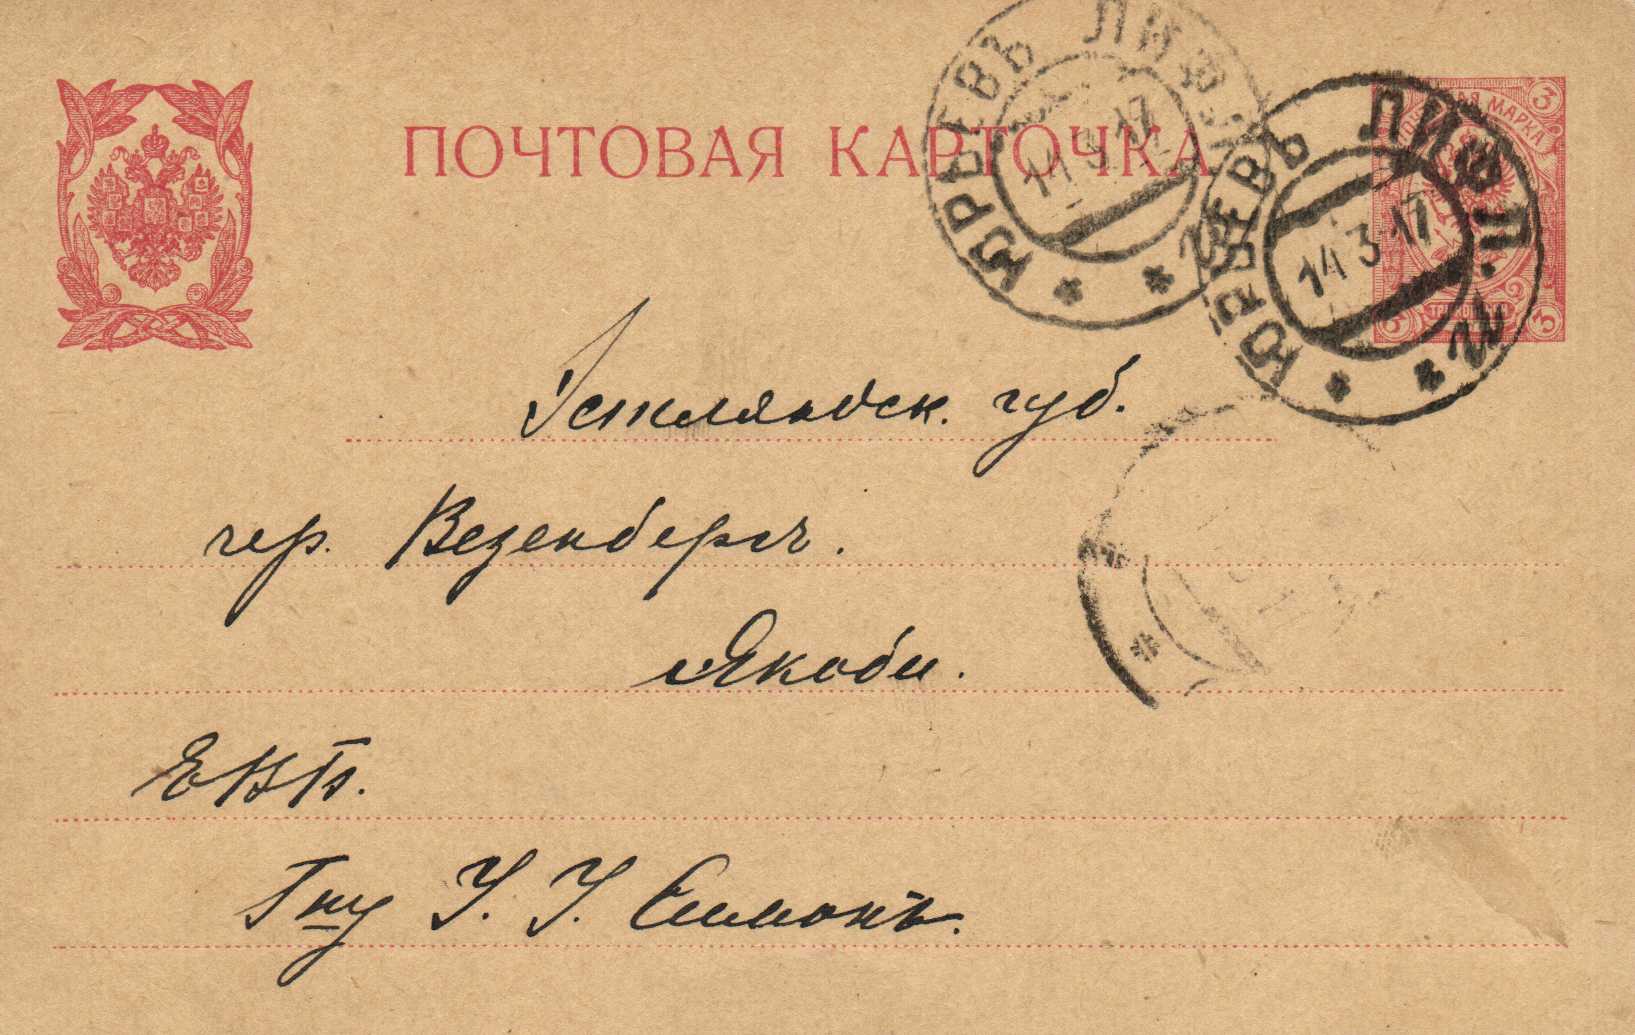 ПОЧТОВАЯ КАРТОЧКА
ЮРЬЕВЪ ЛИФЛ.
14 3 17
ЮРЬЕВЪ ЛИФЛ.
14 3 17
МАРКА
3
3
3
Эстляндск. губ.
чер. Везенбергъ.
Якоби.
ЕВП.
Гну У. У. Симонъ.